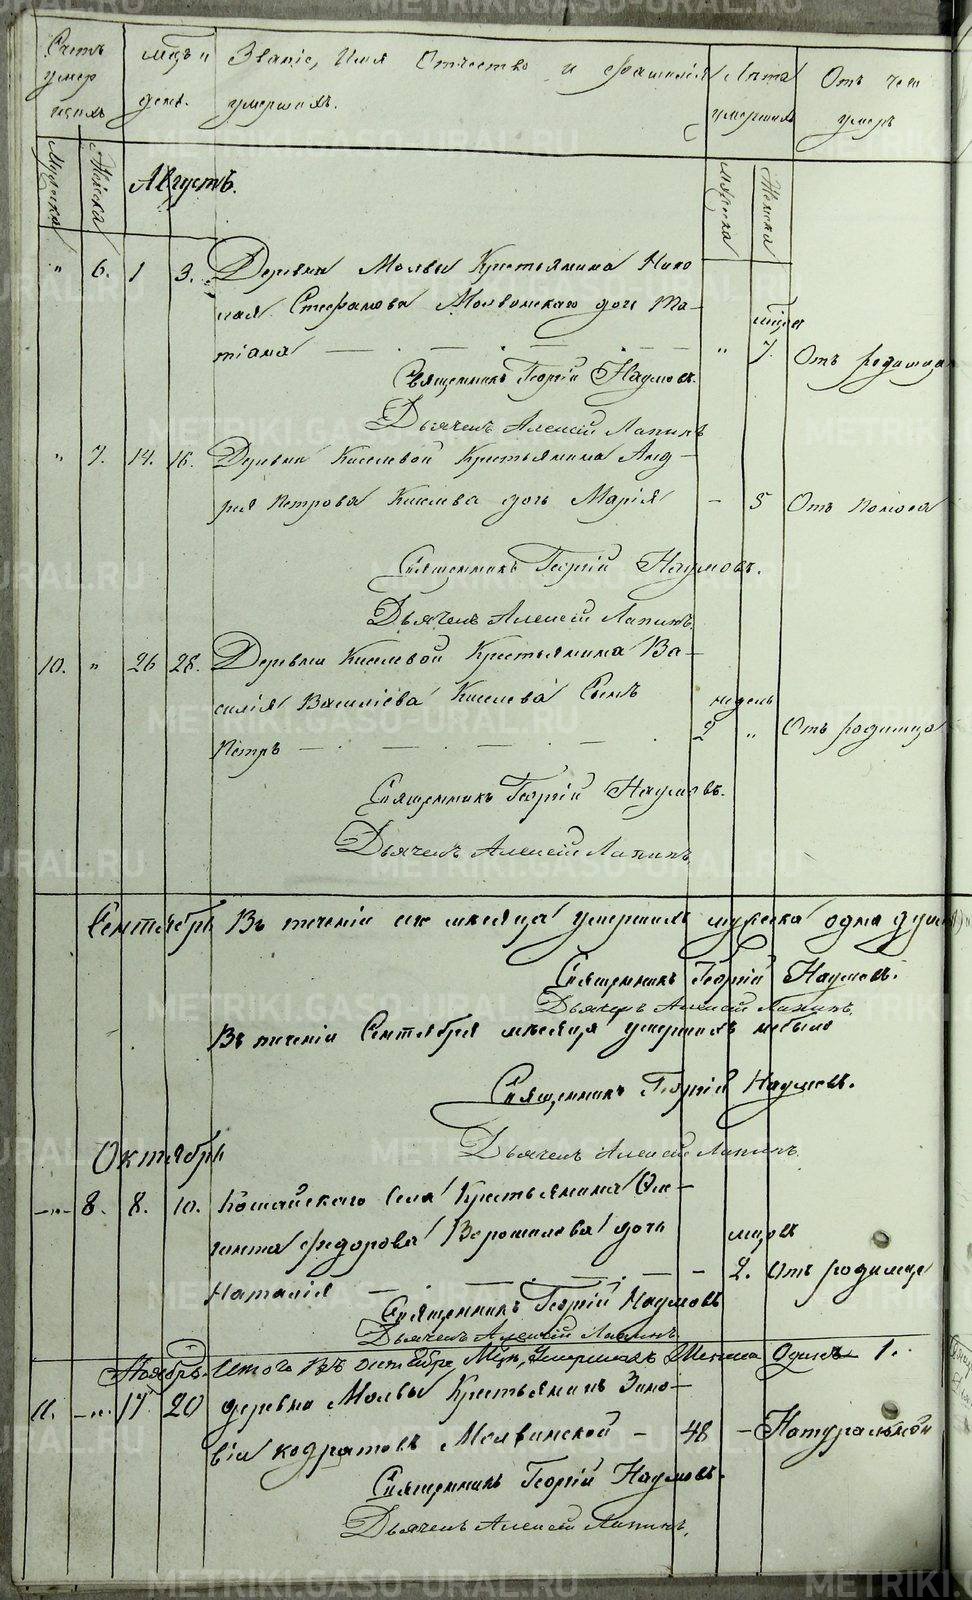 Счетъ умершихъ
мцъ и день.
Званіе, Имя Отчество и фамилія умершихъ.
Лѣта умершихъ
Отъ чего умеръ
Мужеска
Женска
Августъ.
Мужеска
Женска
" 6. 1 3. Деревни Молвы Крестьянина Нико
лая Стефанова Молвинскаго дочь Та-
тіана " 7. Отъ родимца
Священникъ Георгій Наумовъ.
Дьячекъ Алексій Лапинъ
" 7. 14. 16. Деревни Киселевой Крестьянина Анд-
рея Петрова Киселева дочь Марія - 5 Отъ поноса
Священникъ Георгій Наумовъ.
Дьячекъ Алексій Лапинъ.
10. " 26 28. Деревни Киселевой Крестьянина Ва-
силія Василіева Киселева Сынъ недель
Петръ 2 " Отъ родимца
Священникъ Георгій Наумовъ.
Дьячекъ Алексій Лапинъ.
Сентябрь Въ теченіи месяца умершихъ мужеска одна душа
Священникъ Георгій Наумовъ.
Дьячекъ Алексій Лапинъ.
Въ теченіи Сентября месяца умершихъ небыло
Священникъ Георгій Наумовъ.
Дьячекъ Алексій Лапинъ
Октябрь
-"- 8. 8. 10. Кошайскаго Села Крестьянина
Федорова Ворошилова дочь
Наталія - 2. Отъ родимца
Священникъ Георгій Наумовъ
Дьячекъ Алексій Лапинъ
Ноябрь. Итого Въ Октябре Мцѣ Умершихъ Женска Одинъ 1.
11. -"- 17 20 деревни Молвы Крестьянинъ Зино-
вій Кодратовъ Молвинской - 48 - Натуральной
Священникъ Георгій Наумовъ.
Дьячекъ Алексій Лапинъ.
METRIKI.GASO-URAL.RU